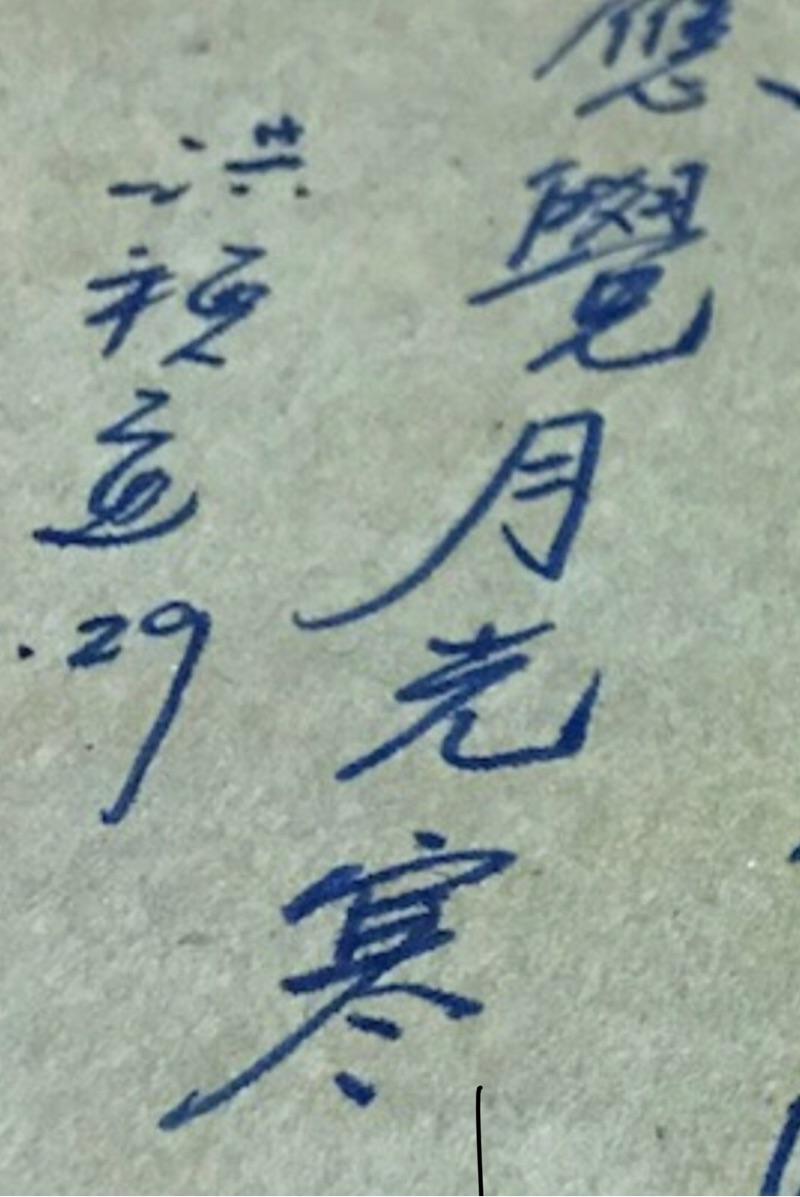 應覺月光寒
洪
.29